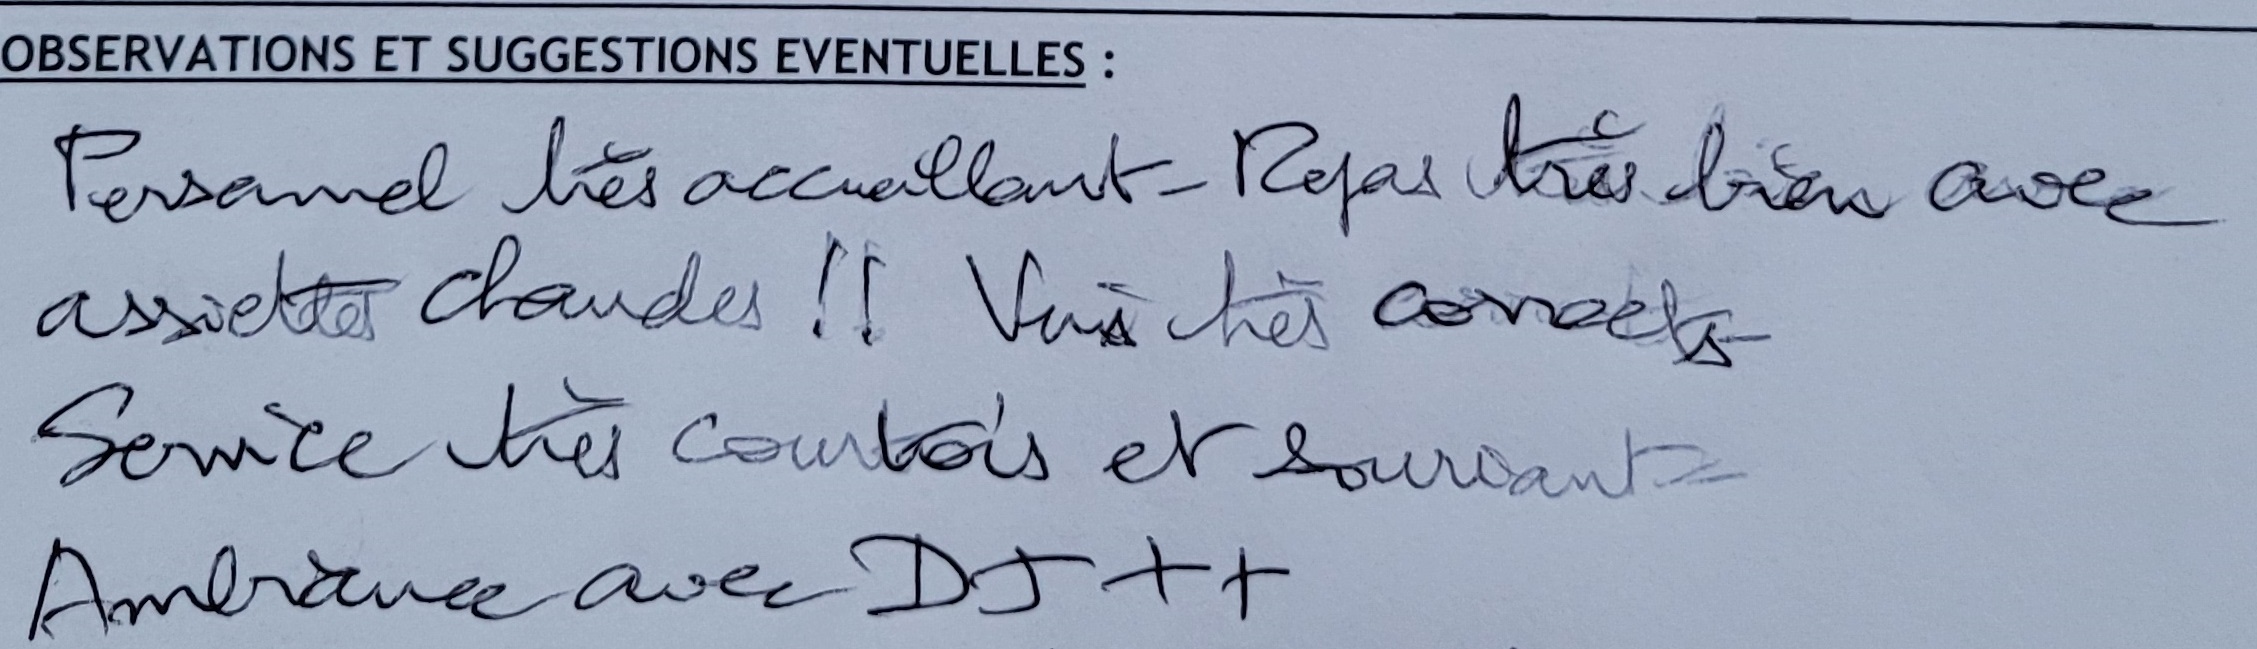 OBSERVATIONS ET SUGGESTIONS EVENTUELLES :
Personnel très accueillant - Repas très bien avec
assiettes chaudes !! Vins très corrects -
Service très courtois et souriant -
Ambiance avec DJ ++